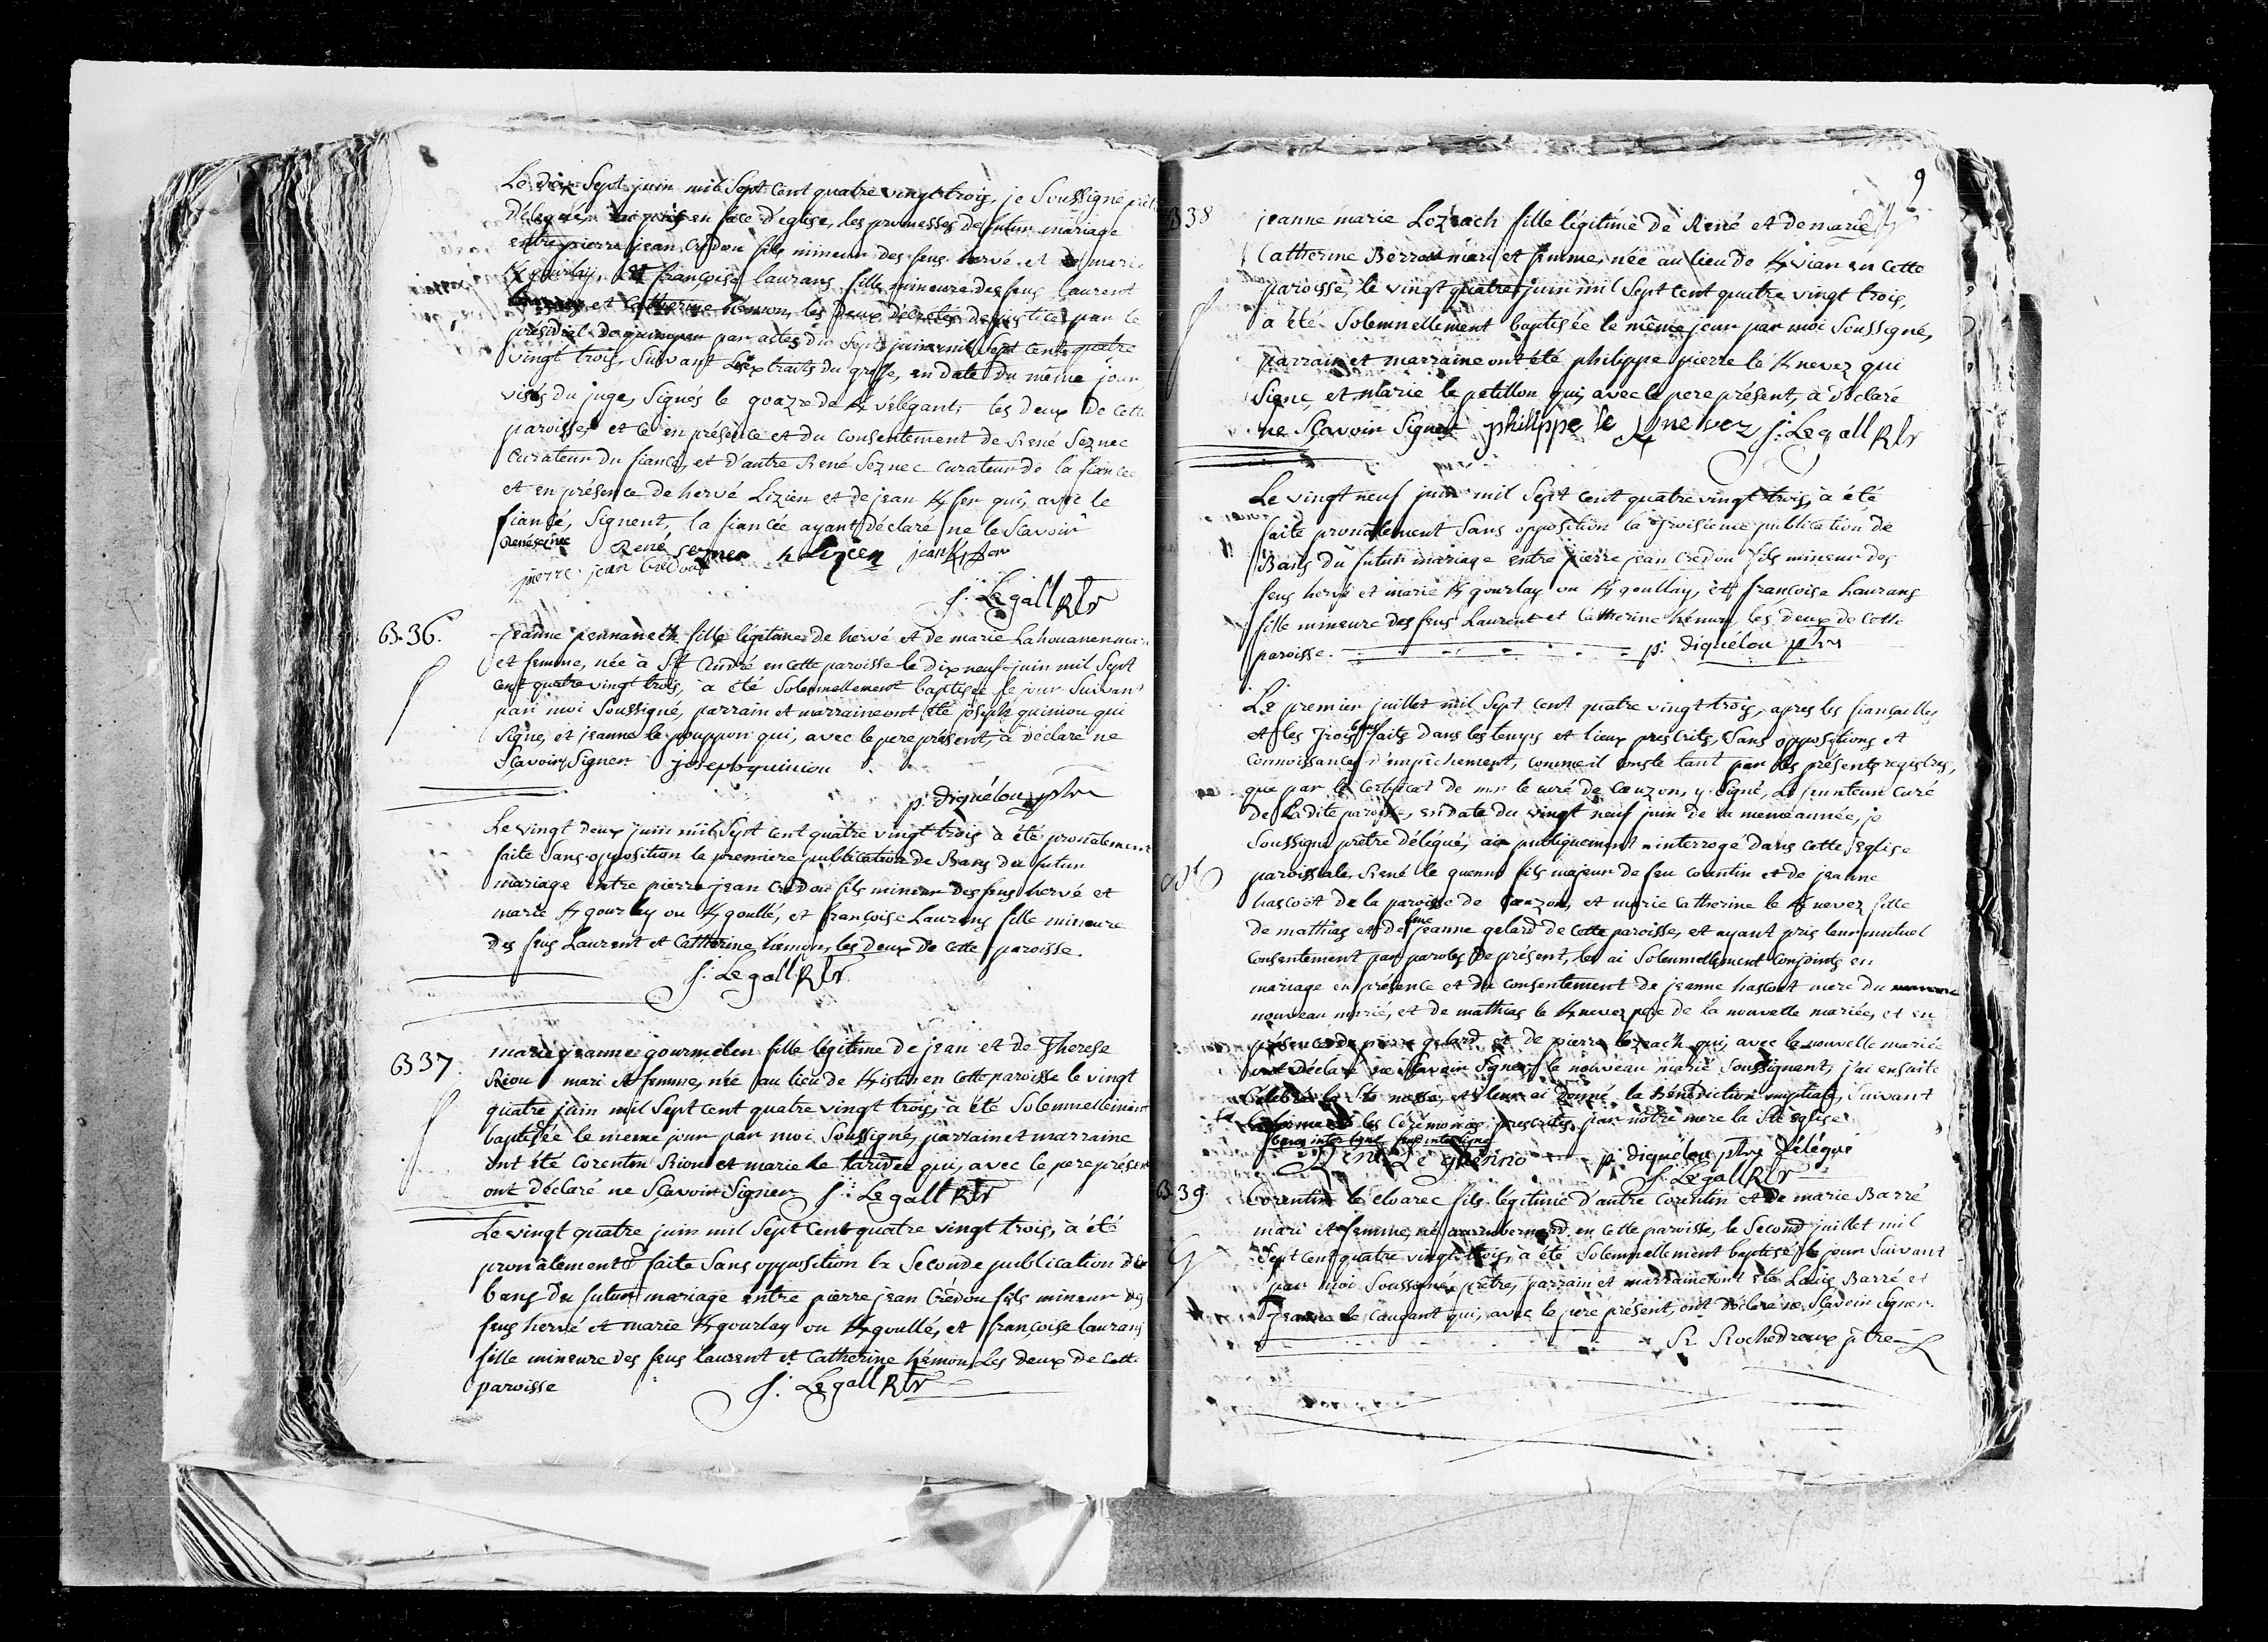 8
Le dix Sept juin mil Sept Cent quatre vingt trois, je Soussigné
Délegué, en face d'eglise, les promesses de futur mariage
entre pierre jean Crédou fils mineur des feus hervé et marie
Kgourlay, Et françoise laurans fille mineure des feus laurent
et Catherine hémon, les deux décretés de justice par le
présidial de quimper par actes du Sept juin mil sept Cent quatre
vingt trois, Suivant Les extraits du greffe, en date du même jour
visés du juge, Signés le goazre de Kvélégant, les deux de cette
paroisse, et ce en présence et du Consentement de René Seznec
Curateur du fiancé, et d'autre René Seznec Curateur de la fiancée
et en présence de hervé Lizien et de jean Kser qui, avec le
fiancé, Signent, la fiancée ayant déclaré ne le Scavoir
René Seznec René Seznec h Lizien jean Kser
pierre jean Credou
f: Le gall Rtr
B. 36.
Jeanne pennaneth fille légitime de hervé et de marie Lahouanen mari
et femme, née à St André en cette paroisse le dix neuf juin mil Sept
cent quatre vingt trois, a été Solemnellement baptisée le jour Suivant
par moi Soussigné, parrain et marraine ont été joseph quiniou qui
Signe, et jeanne le pouppon qui, avec le pere présent, à déclaré ne
Sçavoir Signer joseph quiniou
p. diquélou ptre
Le vingt deux juin mil Sept Cent quatre vingt trois à été pronalement
faite Sans opposition la premiere publication de Bans du futur
mariage entre pierre jean Credou fils mineur des feus hervé et
marie Kgourlay ou Kgoullé, et françoise Laurens fille mineure
des feus Laurent et Catherine hémon, les deux de Cette paroisse.
f: Le gall Rtr
B 37.
marie jeanne gourmelen fille légitime de jean et de Therese
Riou mari et femme, née au lieu de Kistin en Cette paroisse le vingt
quatre juin mil Sept cent quatre vingt trois, à été Solemnellement
baptisée le meme jour par moi Soussigné, parrain et marraine
ont été Corentin Riou et marie le taridec qui, avec le pere présent
ont déclaré ne Sçavoir Signer f: Le gall Rtr
Le vingt quatre juin mil Sept Cent quatre vingt trois, à été
pronalement faite Sans opposition la Seconde publication de
bans du futur mariage entre pierre jean Crédou fils mineur des
feus hervé et marie Kgourlay ou Kgoullé, et françoise laurans
fille mineure des feus laurent et Catherine hémon, Les deux de Cette
paroisse f: Le gall Rtr
9
B 38
jeanne marie Lozeach fille légitime de René et de marie
Catherine Berrou mari et femme, née au lieu de Kvian en Cette
paroisse, le vingt quatre juin mil Sept Cent quatre vingt trois,
a été Solemnellement baptisée le même jour par moi Soussigné,
parrain et marraine ont été philippe pierre le Knevez qui
Signe, et marie le petillon qui, avec le pere présent, à déclaré
ne Sçavoir Signer philippe le Knevez f: Le gall Rtr
Le vingt neuf juin mil Sept Cent quatre vingt trois, à été
faite pronalement Sans opposition la troisieme publication de
Bans du futur mariage entre pierre jean Credou fils mineur des
feus hervé et marie Kgourlay ou Kgoullay, et françoise Laurans
fille mineure des feus Laurent et Catherine hémon, les deux de Cette
paroisse. p: diquélou ptre
Le premier juillet mil Sept Cent quatre vingt trois, apres les fiançailles
et les Trois bans faits dans les temps et lieux prescrits, Sans oppositions et
Connoissances d'empêchement, comme il conste tant par les présents registres,
que par le Certificat de mr le curé de Cauzon, y Signé, Le curé
de Ladite paroisse, en date du vingt neuf juin de la meme année, je
Soussigné prêtre délégué, ai publiquement interrogé dans Cette Eglise
paroissiale, René le guenno fils majeur de feu Corentin et de jeanne
hascoët de la paroisse de Cauzon, et marie Catherine le Knevez fille
de mathias et de feue jeanne gelard de Cette paroisse, et ayant pris leur mutuel
Consentement par paroles de présent, les ai Solemnellement Conjoints en
mariage en présence et du Consentement de jeanne hascoët mere du
nouveau marié, et de mathias le Knevez pere de la nouvelle mariée, et en
présence de pierre gelard et de pierre lozeach qui, avec la nouvelle mariée
ont déclaré ne Sçavoir Signer, le nouveau marié Soussignant, j'ai ensuite
Célébré la Ste messe, et leur ai donné la bénédiction nuptiale, Suivant
la forme et les Cérémonies prescrites par nôtre mere la Ste église
bans interligne feue interligne
René Le guenno p. diquélou ptre délégué
f: Le gall Rtr
B 39.
Corentin le cloarec fils légitime d'autre Corentin et de marie Barré
mari et femme, né en cette paroisse, le Second juillet mil
Sept Cent quatre vingt trois, à été Solemnellement baptisé le jour Suivant
par moi Soussigné prêtre, parrain et marraine ont été Louis Barré et
Jeanne le Caugant qui, avec le pere présent, ont déclaré ne Sçavoir Signer.
R. Rochedreux ptre